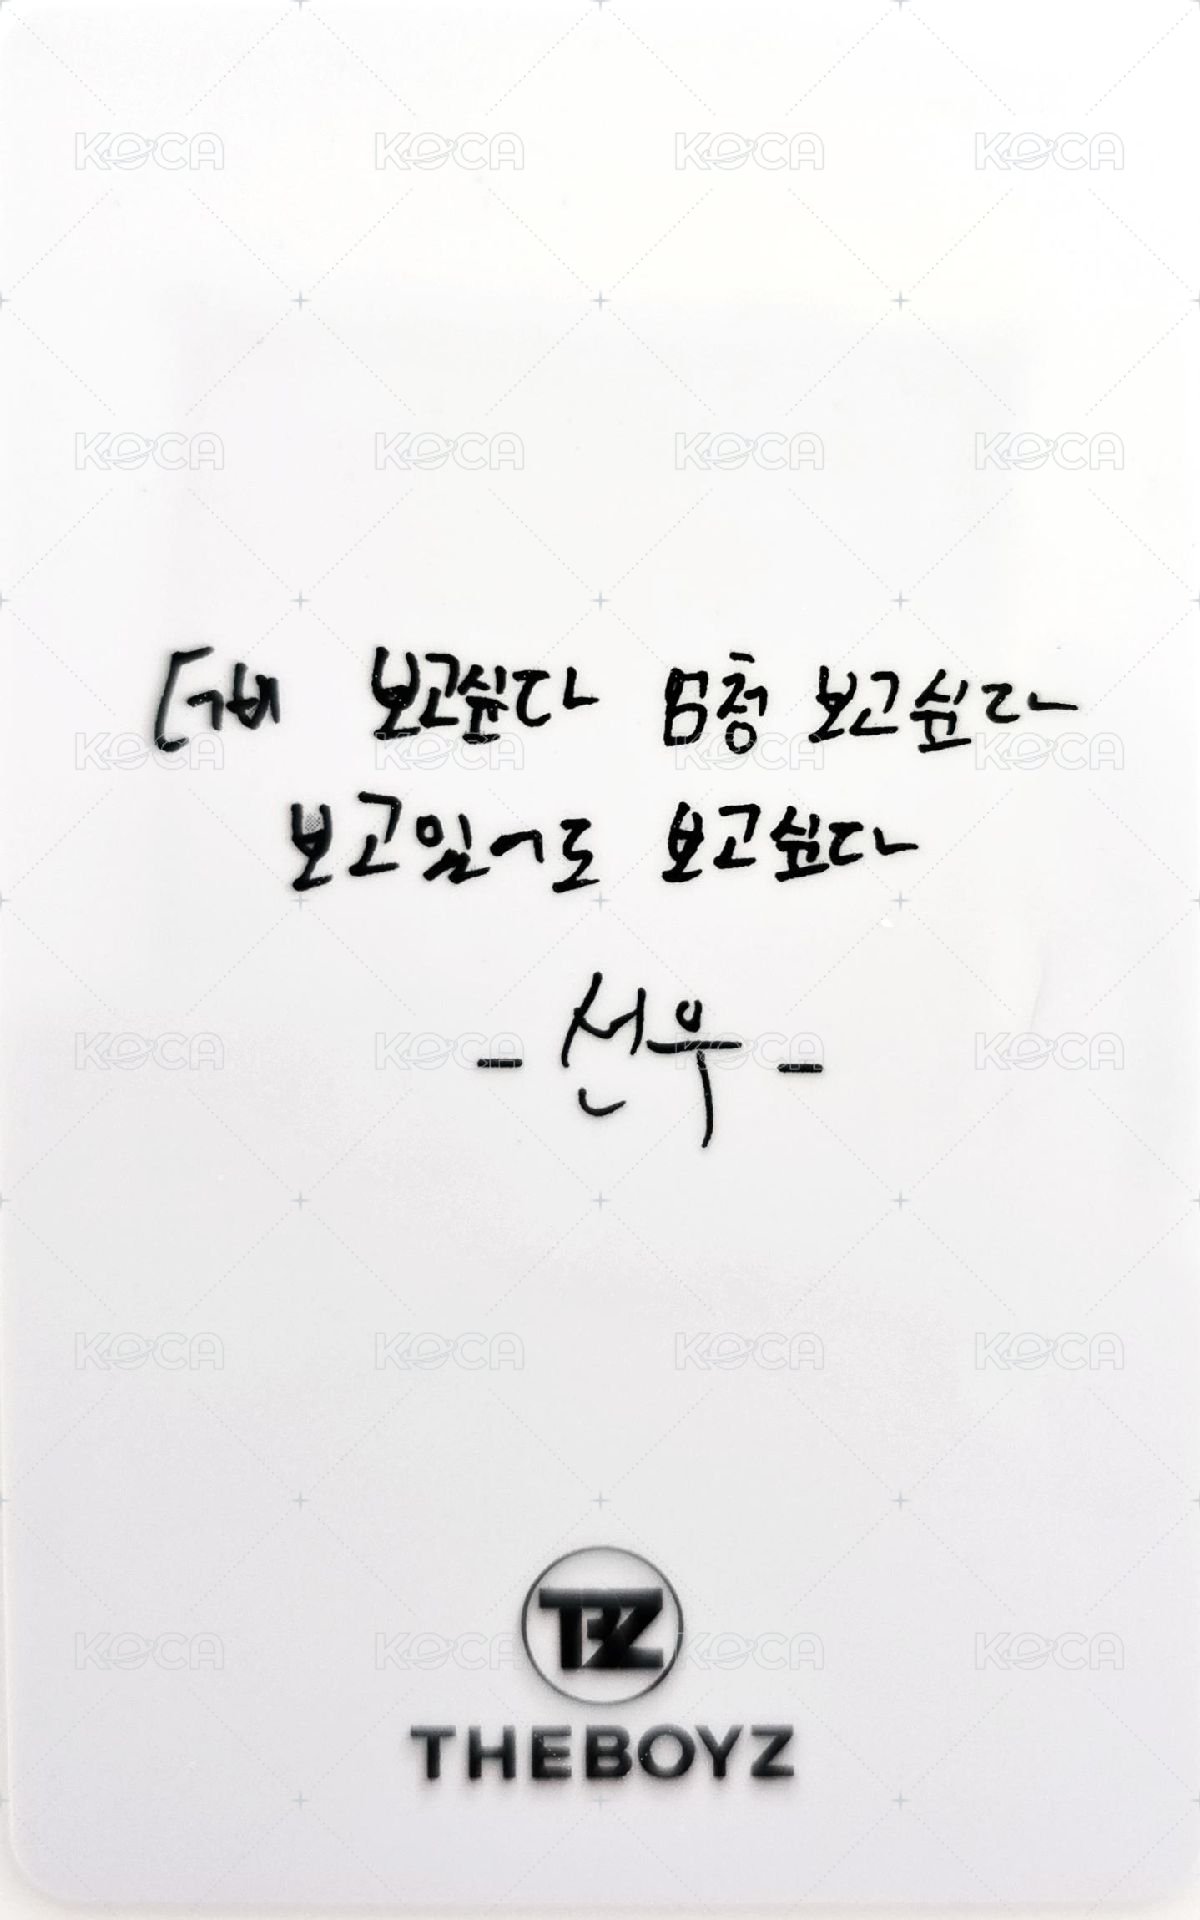 더비 보고싶다 엄청 보고싶다
보고있어도 보고싶다
- 선우 -
TBZ
THEBOYZ
KOCA KOCA KOCA KOCA
KOCA KOCA KOCA KOCA
KOCA KOCA KOCA KOCA
KOCA KOCA KOCA KOCA
KOCA KOCA KOCA KOCA
KOCA KOCA KOCA KOCA